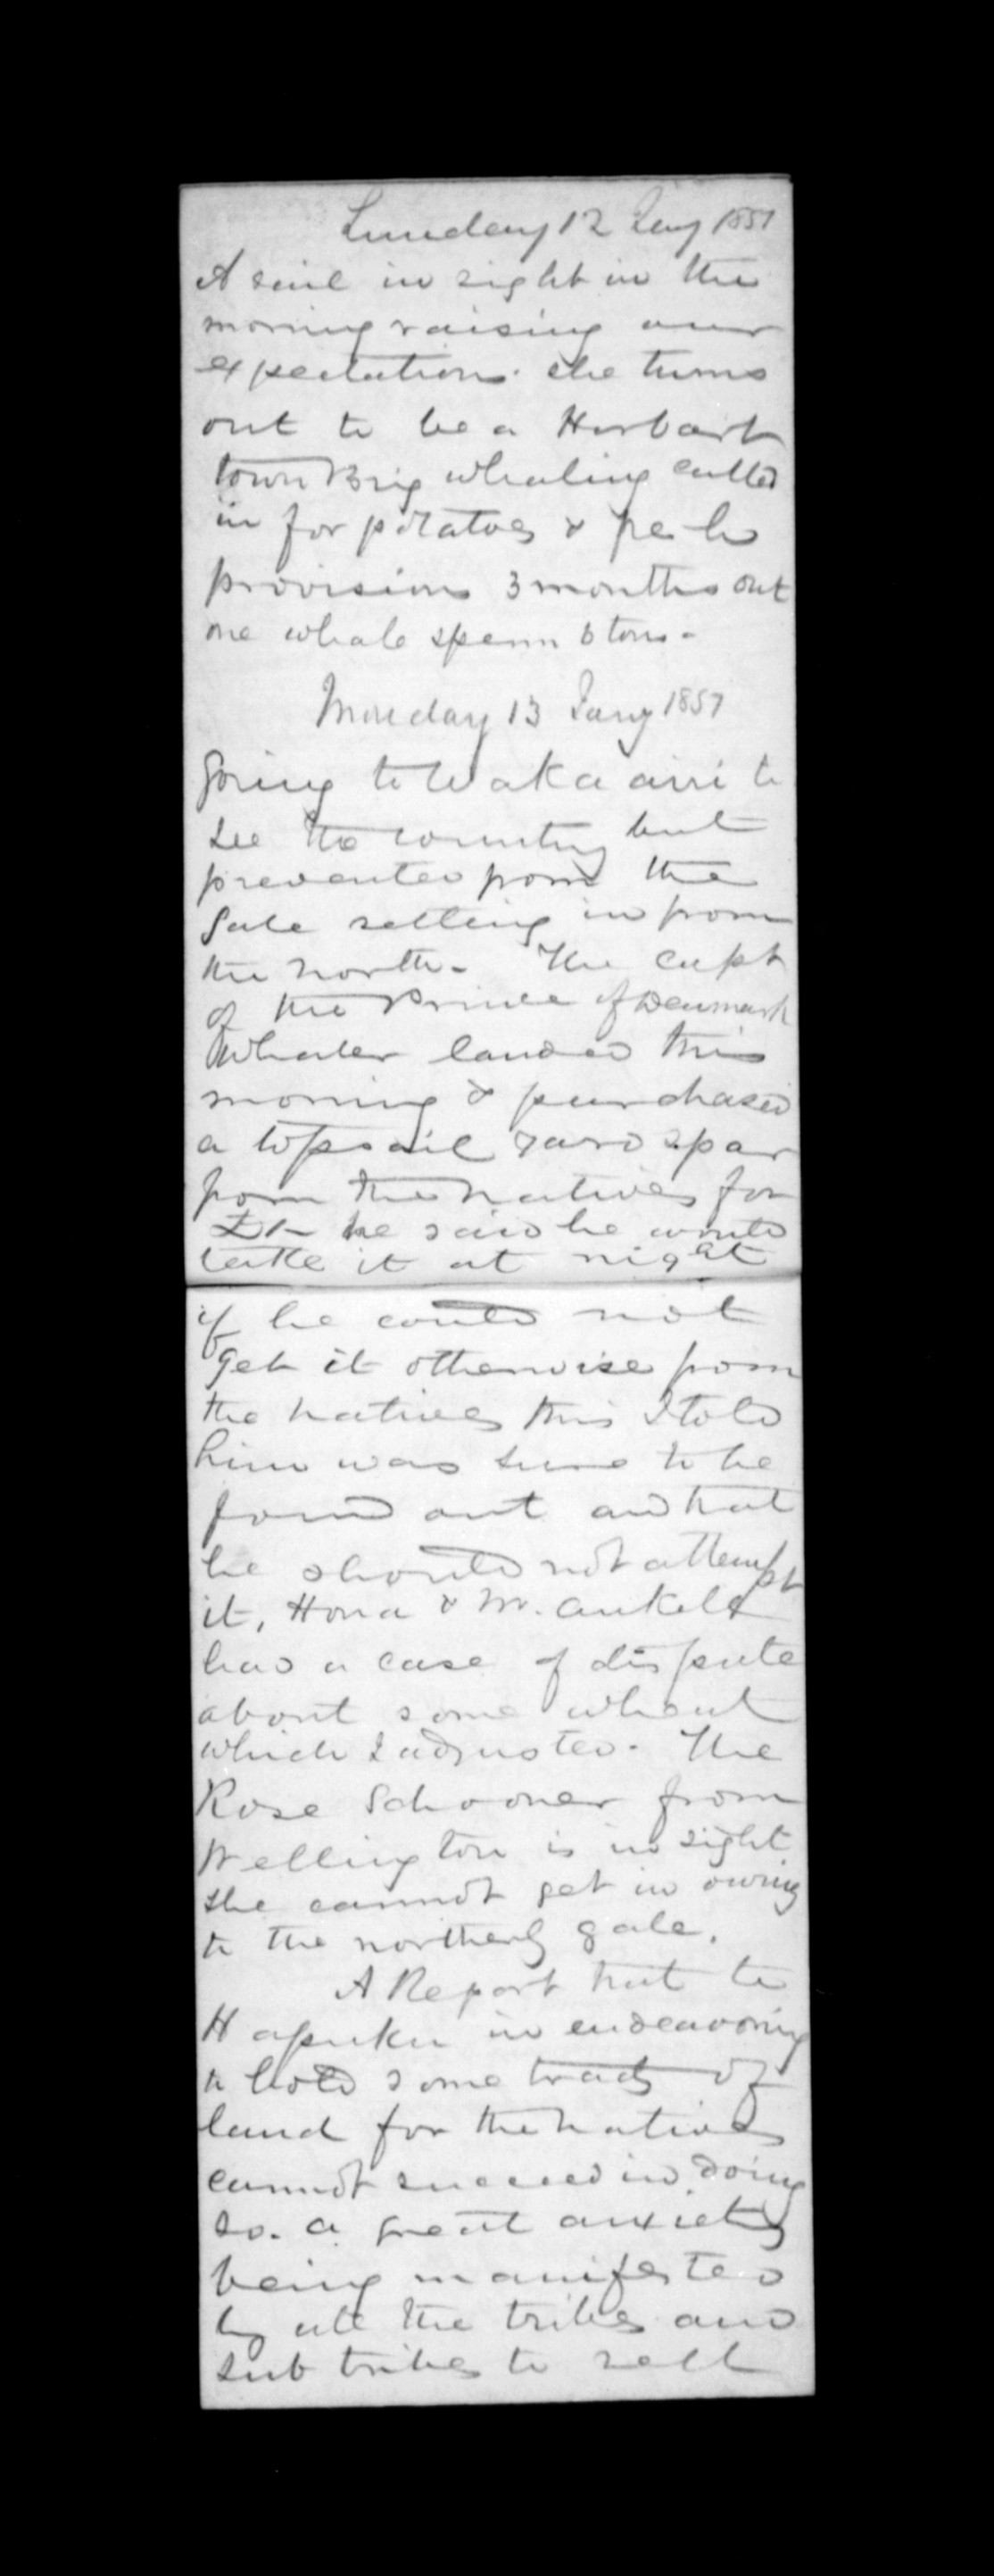 Sunday 12 Jany 1851
A sail in sight in the
morning raising our
expectations. she turns
out to be a Horbart
town Brig whaling called
in for potatoes & fresh
provisions 3 months out
one whale sperm 6 tons -
Monday 13 Jany 1851
Going to Waka airi to
see the country but
prevented from the
Gale setting in from
the north - The capt
of the Prince of Denmark
Whaler landed this
morning & purchased
a topsail yard spar
from the natives for
£1- he said he would
take it at night
if he could not
get it otherwise from
the natives this I told
him was sure to be
found out and that
he should not attempt
it, Hona & Mr.
had a case of dispute
about some wheat
which I adjusted. The
Rose Schooner from
Wellington is in sight
she cannot get in owing
to the northerly gale.
A Report that te
Hapuku in endeavoring
to hold some tracts of
land for the natives
cannot succeed in doing
so. a great anxiety
being manifested
by all the tribes and
sub tribes to sell